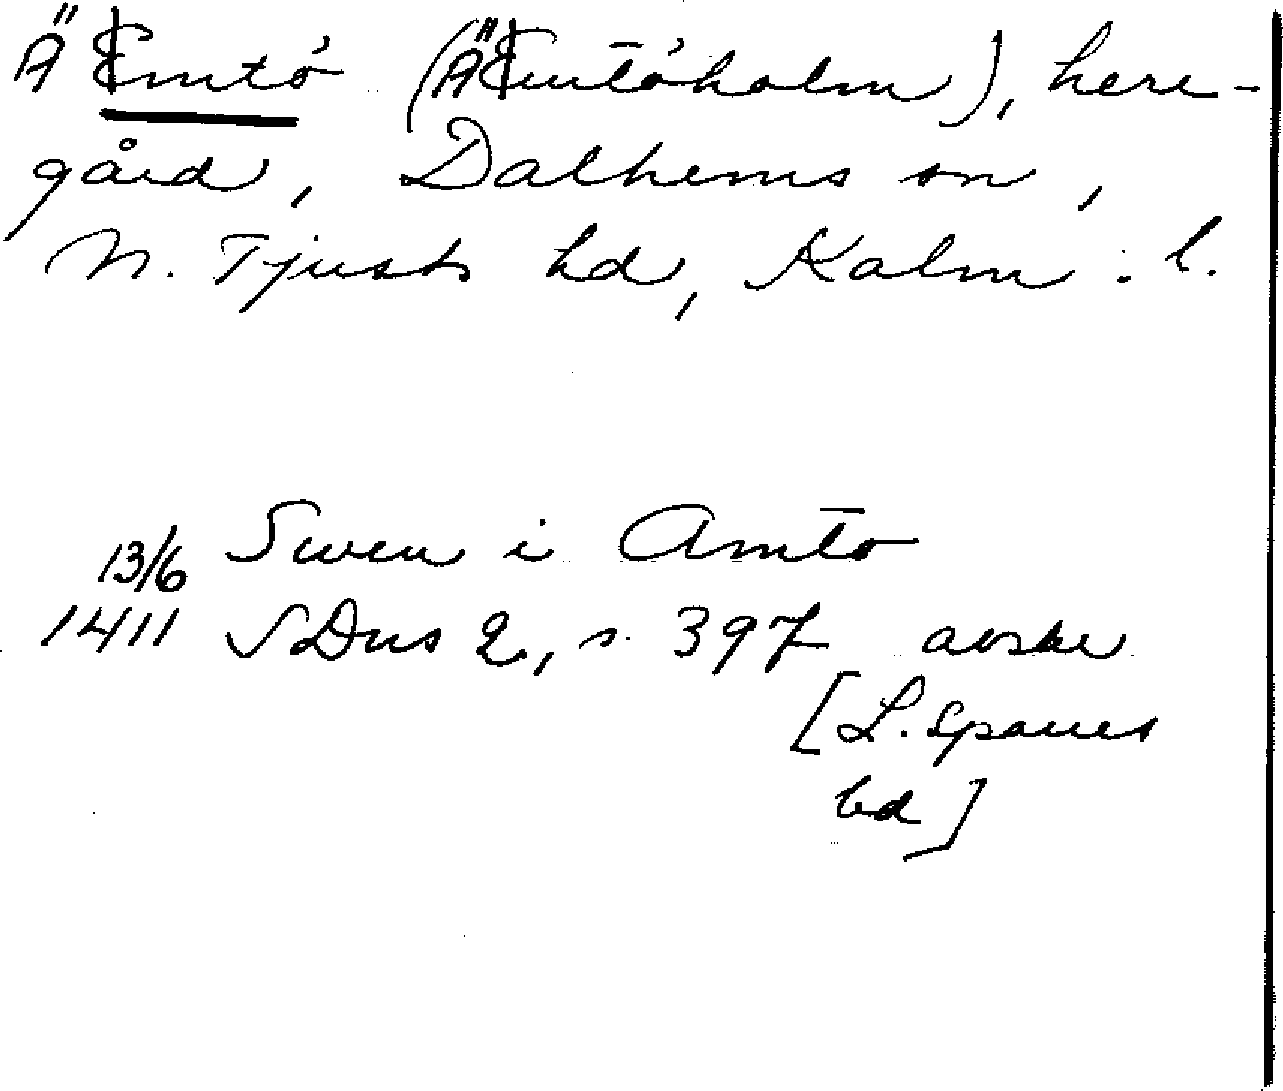 Ämtö (Ämtöholm), herr-
gård, Dalhems sn,
N. Tjusts hd, Kalm. l.
13/6 Swen i Amto
1411 SDns 2, s. 397 avskr
[L. Sparres
bd]